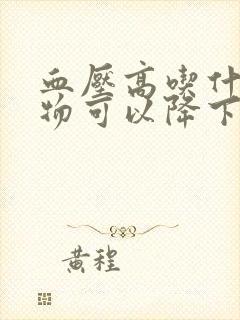 血壓高喫什
物可以降下
黄程